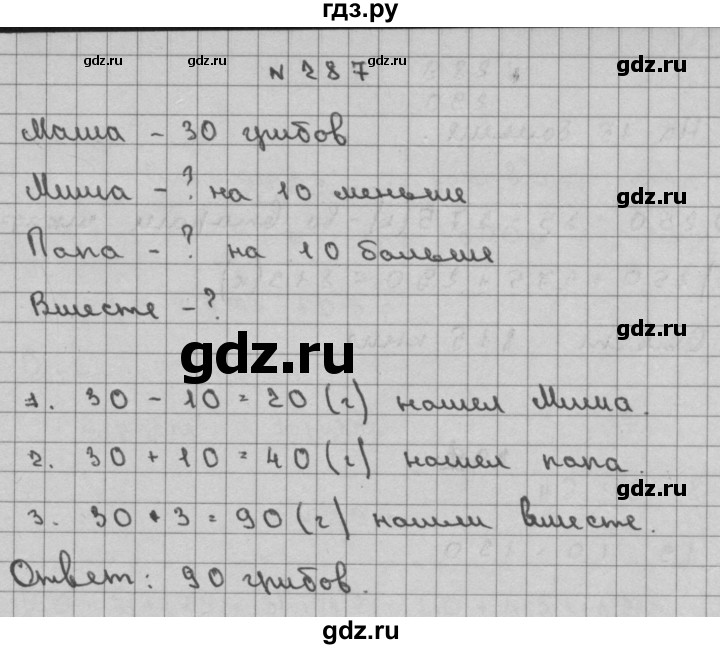 гдз.ру
gdz.ru gdz.ru gdz.ru
N 287
Маша – 30 грибов
Миша – ? на 10 меньше
gdz.ru
Папа – ? на 10 больше
Вместе – ?
gdz.ru
gdz.ru
1. 30 – 10 = 20 (г) нашел Миша.
2. 30 + 10 = 40 (г) нашел папа.
gdz.ru
3. 30 • 3 = 90 (г) нашли вместе.
Ответ: 90 грибов.
gdz.ru gdz.ru gdz.ru
gdz.ru